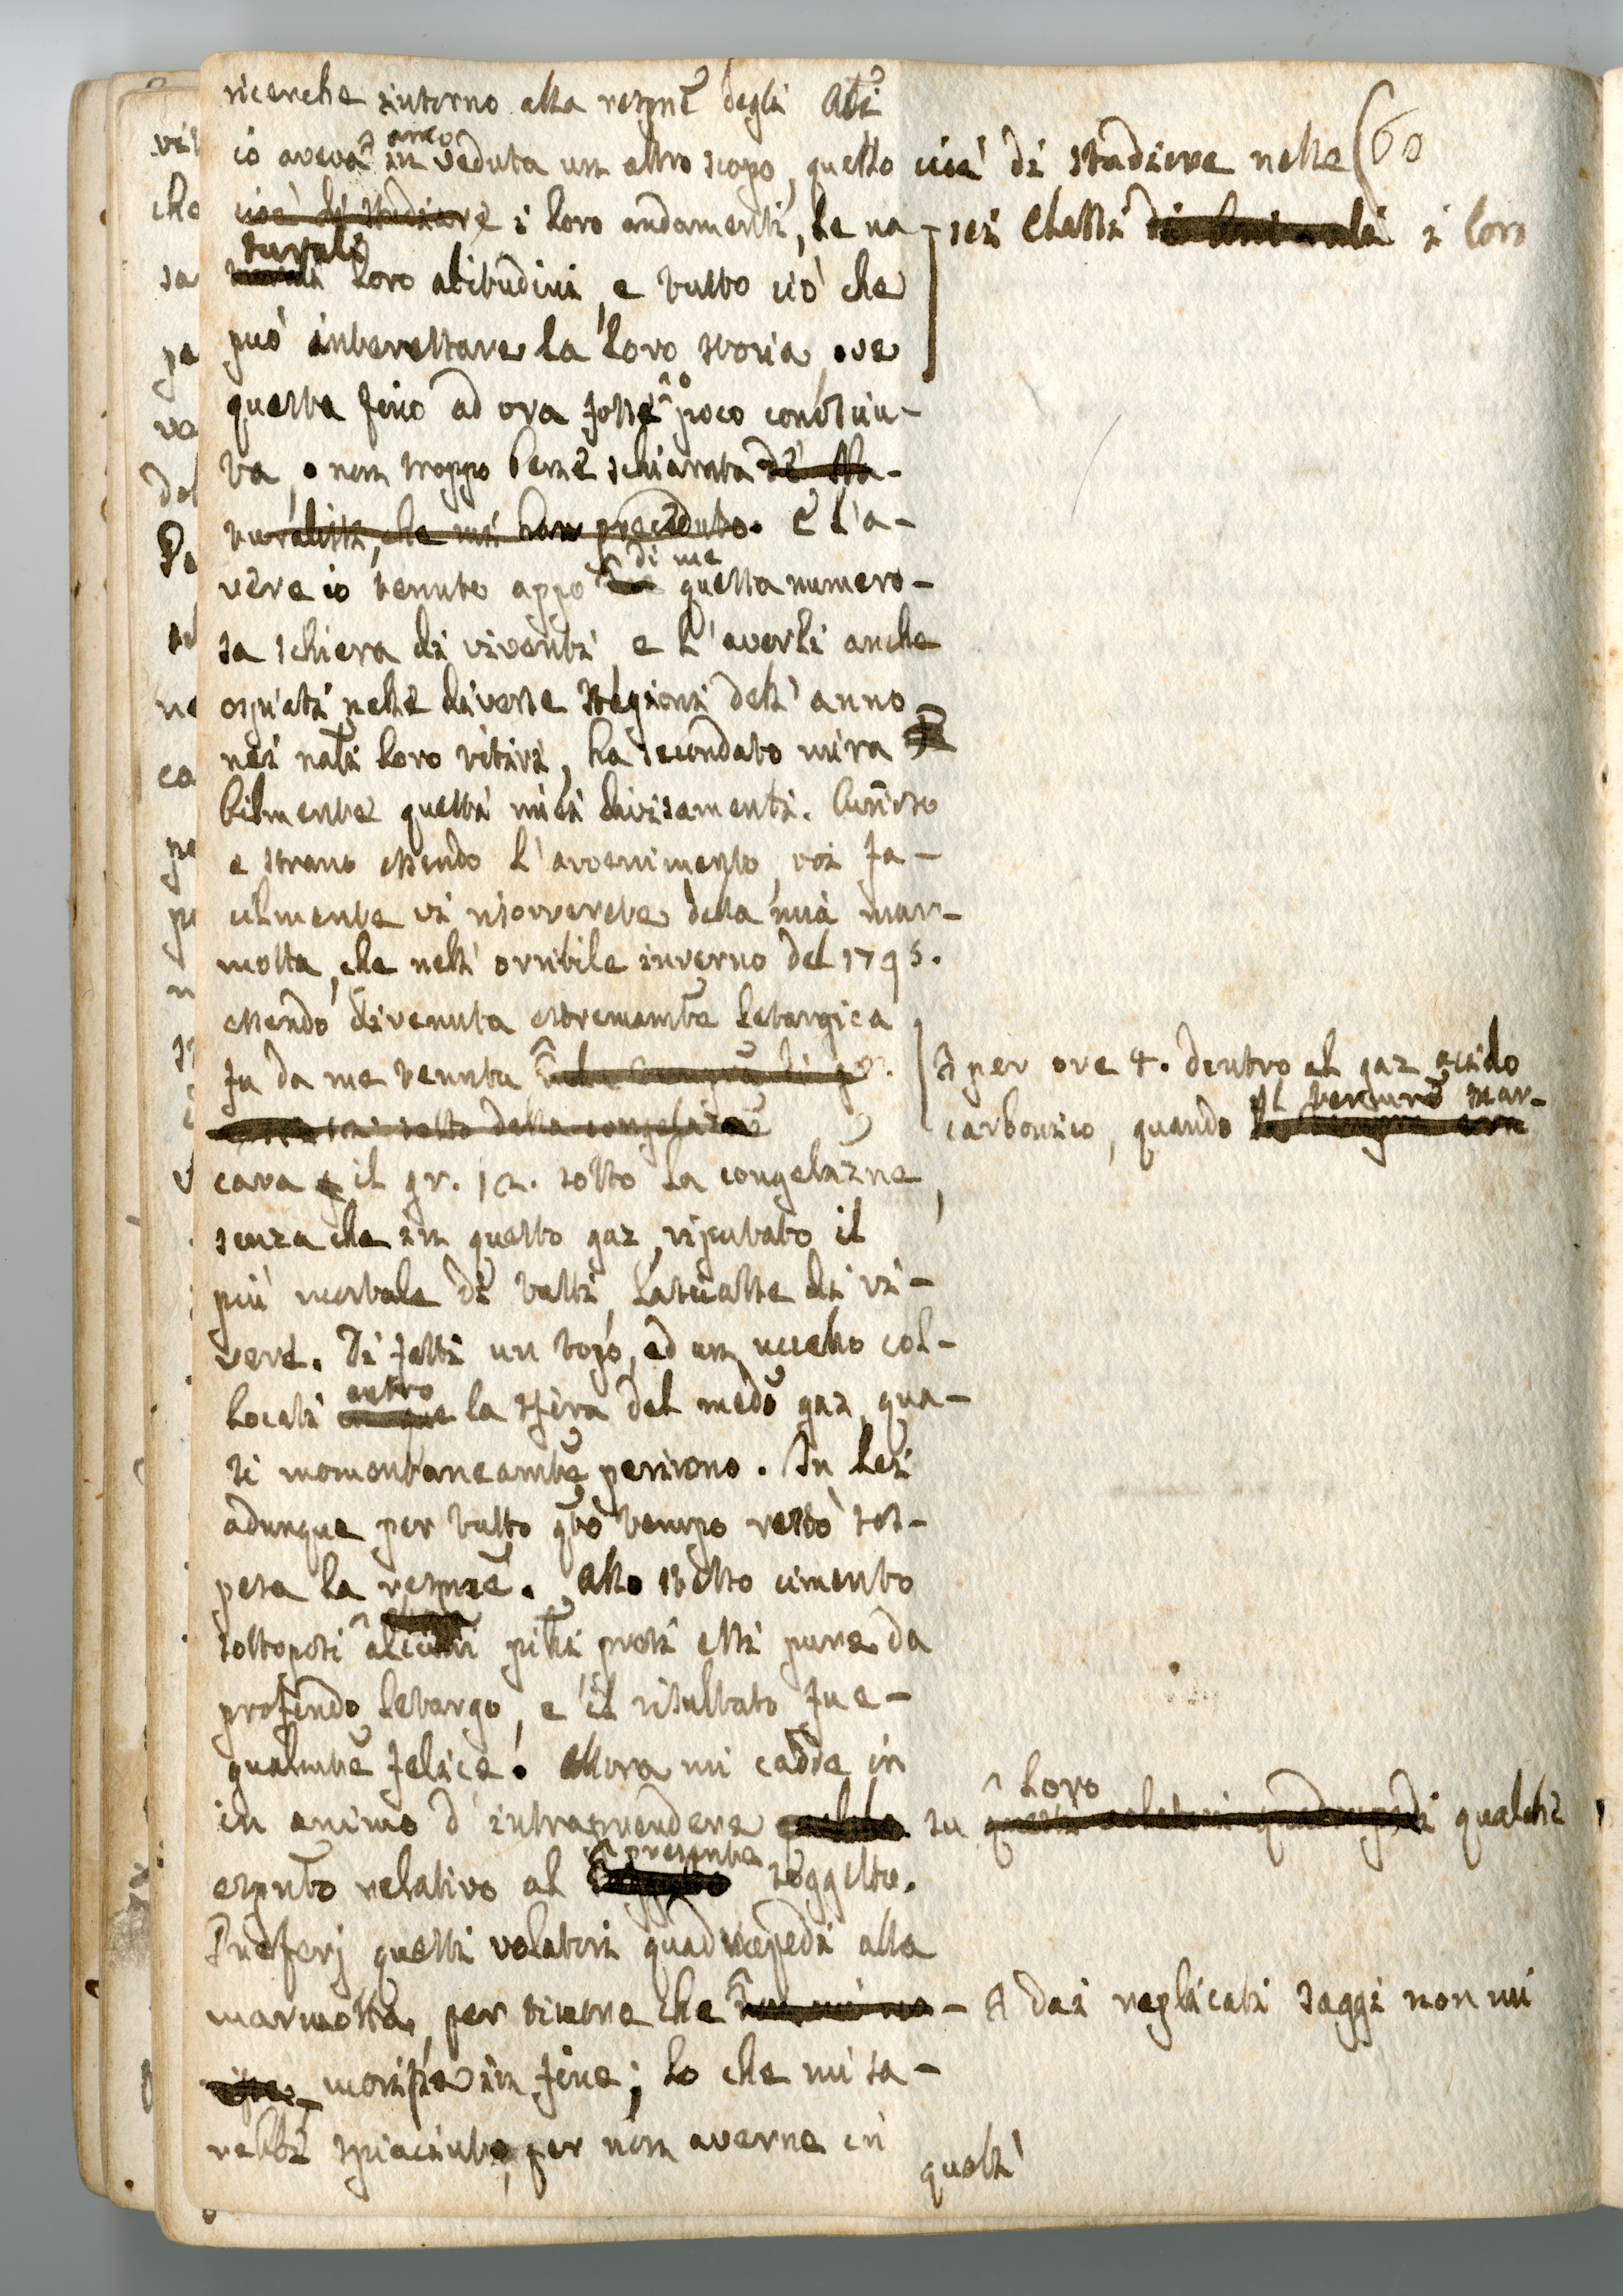 ricerche intorno alla respne degli Ali
io aveva anco in veduta un altro scopo, quello cioè di studiare nelle (60
cioè di studiare i loro andamenti, le na- sei classi i loro
turali loro abitudini, e tutto ciò che
può interessare la loro storia, ove
questa fino ad ora fosse o poco conosciu-
ta, o non troppo bene schiarita de' Na-
turalisti, che mi han preceduto. E l'a-
vere io tenute appo di me questa numero-
sa schiera di viventi, e l'averli anche
ospiati nelle diverse stagioni dell'anno
nei nali loro ritiri, ha secondato mira
bilmente questi miei divisamenti. Curioso
e strano essendo l'avvenimento, voi fa-
cilmente vi risovverete della mia mar-
motta, che nell'orribile inverno del 1795.
essendo divenuta estremamte letargica
fu da me tenuta per ore 4. dentro al gaz acido
sotto della congelazne carbonico, quando il termro mar-
cava il gr. 12. sotto la congelazne,
senza che in questo gaz, riputato il
più mortale di tutti, lasciasse di vi-
vere. Di fatti un topo, ed un uccello col-
locati entro la sfera del medo gaz, qua-
si momentaneamte perirono. In lei
adunque per tutto qto tempo restò sos-
pesa la respne. Allo stesso cimento
sottoposi alcuni pilli presi essi pure da
profondo letargo, e il risultato fu e-
gualmte felice. Allora mi cadde in
in animo d'intraprendere su loro questi volatori quadrupedi qualche
esputo relativo al presente soggetto.
Preferj questi volatori quadrupedi alla
marmotta, per timore che dai replicati saggi non mi
morisse in fine; lo che mi sa-
rebbe spiaciuto, per non averne in
quell'